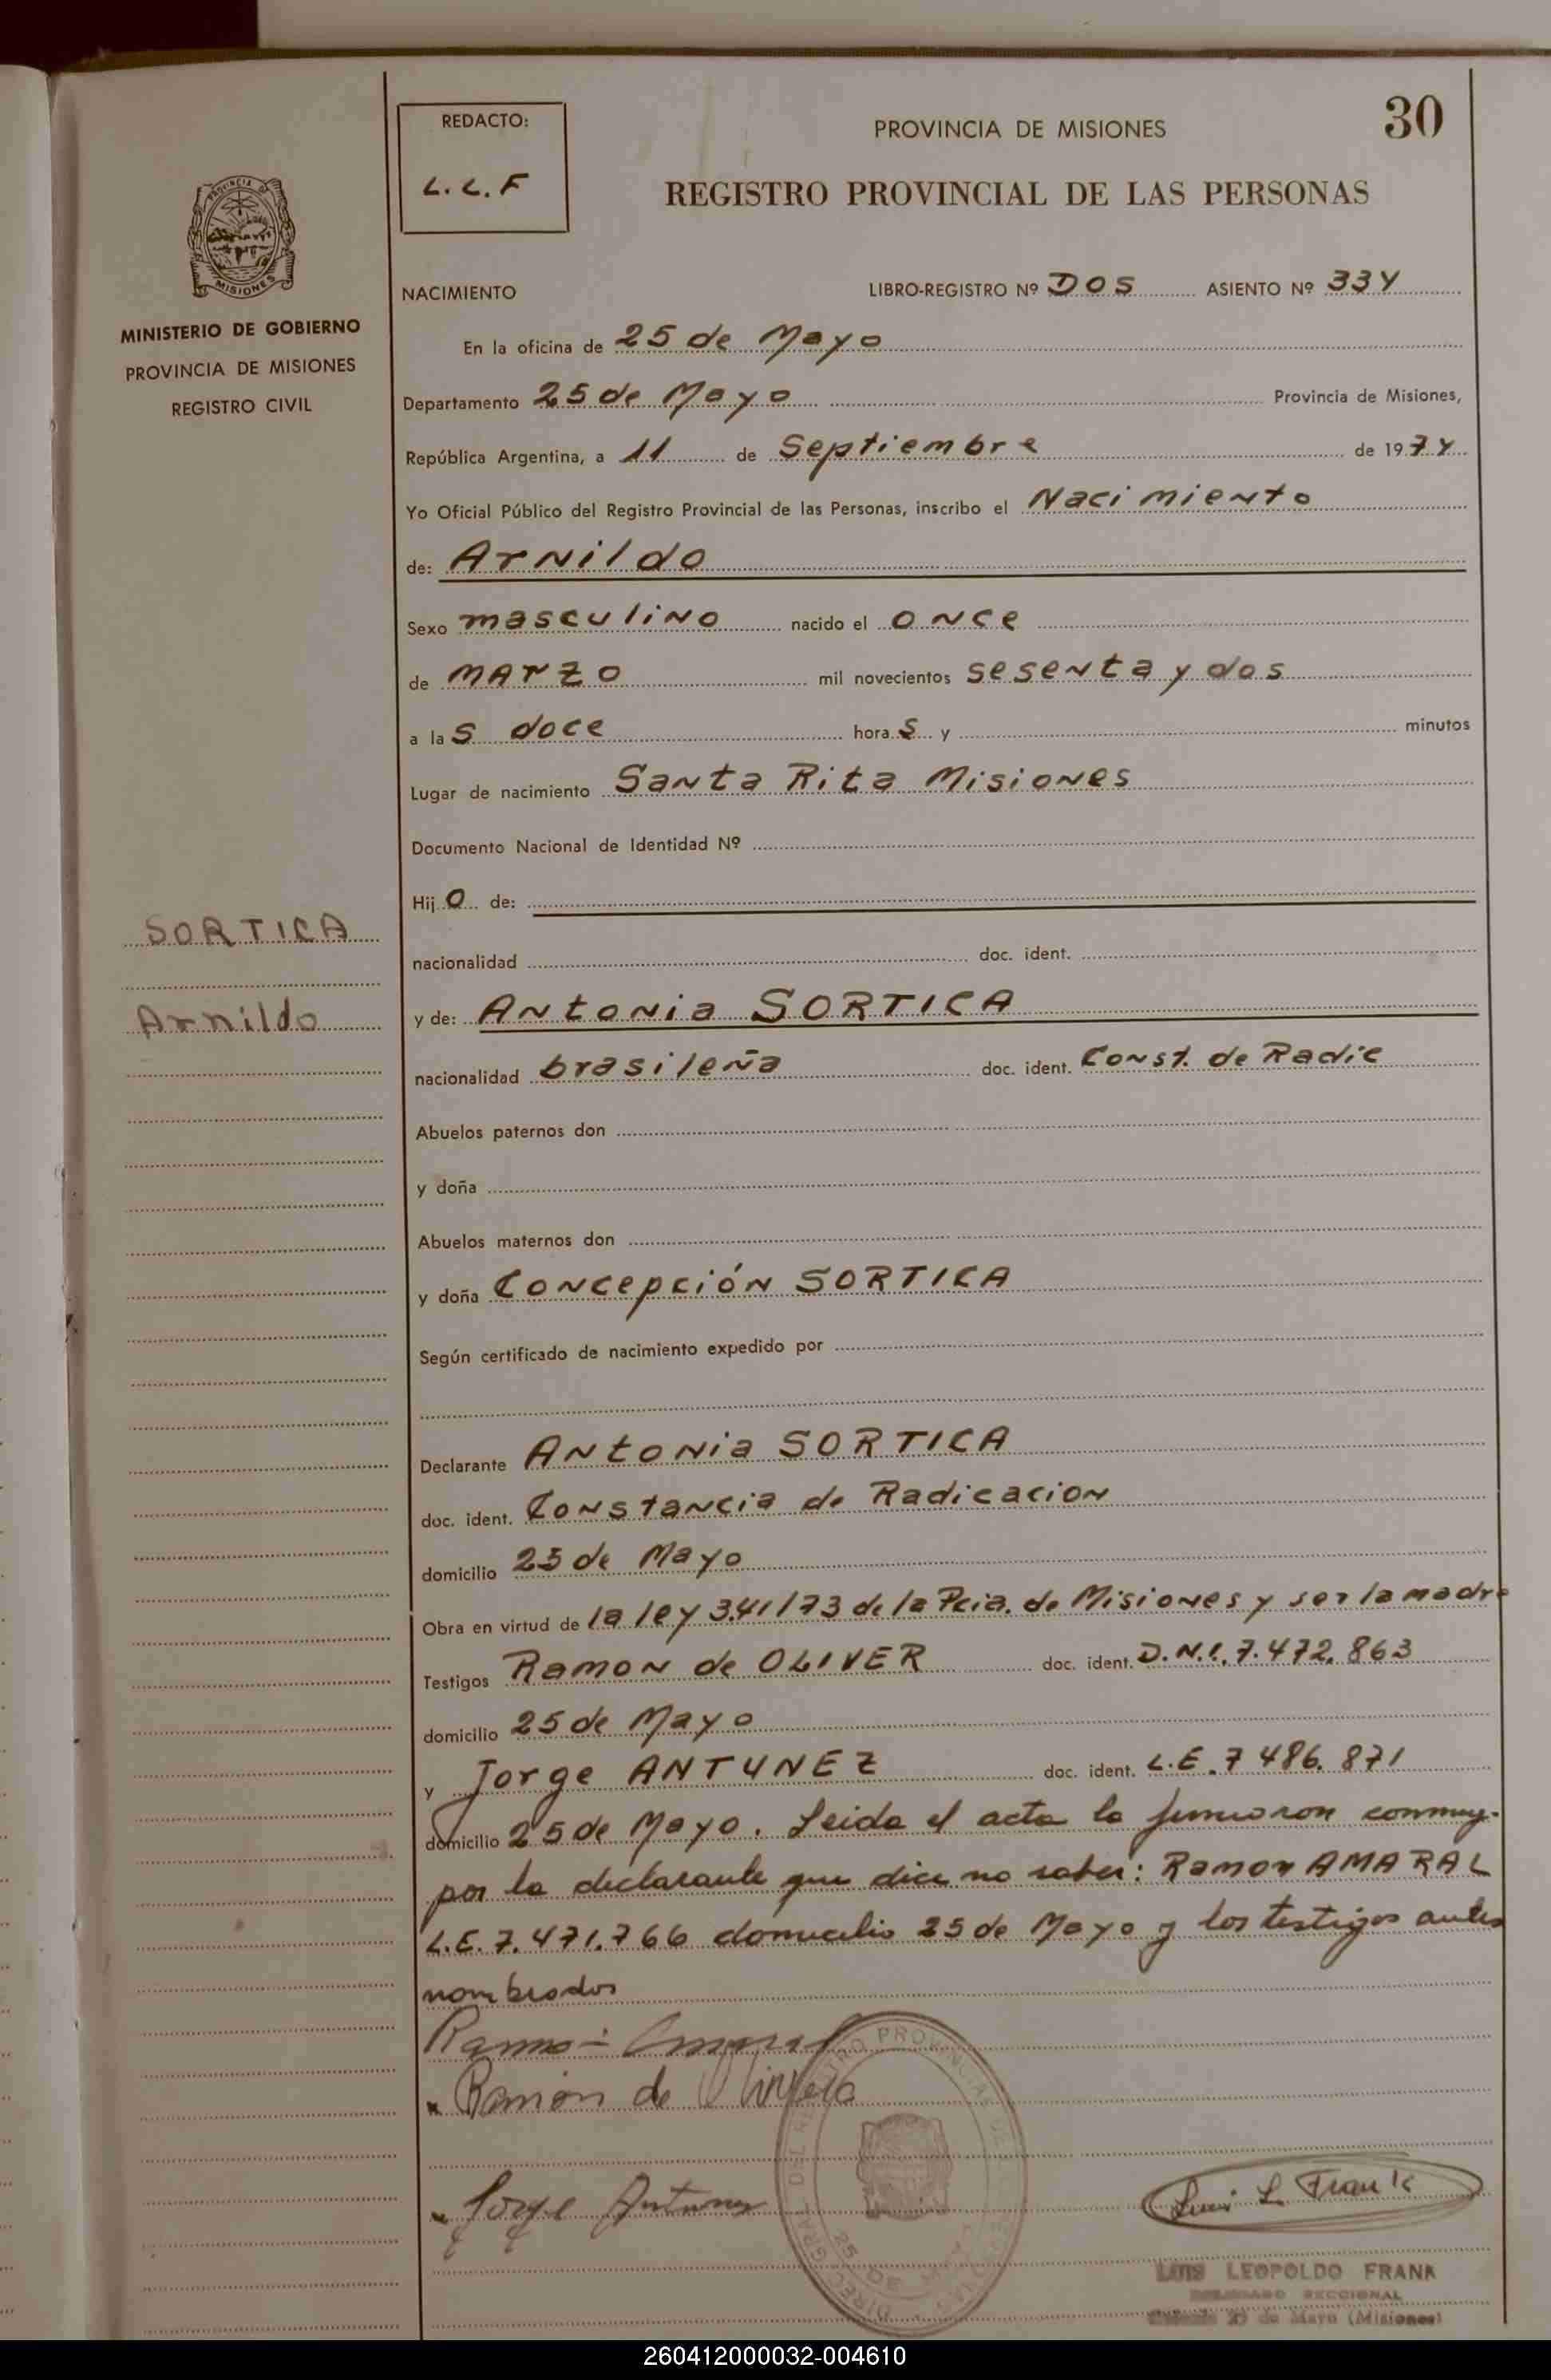 30
REDACTO:
L.L.F
PROVINCIA DE MISIONES
REGISTRO PROVINCIAL DE LAS PERSONAS
PROVINCIA DE
MISIONES
MINISTERIO DE GOBIERNO
PROVINCIA DE MISIONES
REGISTRO CIVIL
NACIMIENTO LIBRO-REGISTRO Nº DOS ASIENTO Nº 334
En la oficina de 25 de Mayo
Departamento 25 de Mayo Provincia de Misiones,
República Argentina, a 11 de Septiembre de 1974
Yo Oficial Público del Registro Provincial de las Personas, inscribo el Nacimiento
de: Arnildo
Sexo masculino nacido el once
de Marzo mil novecientos sesenta y dos
a las doce horas y minutos
Lugar de nacimiento Santa Rita Misiones
Documento Nacional de Identidad Nº
Hijo de:
SORTICA
nacionalidad doc. ident.
Arnildo
y de: Antonia SORTICA
nacionalidad brasileña doc. ident. Const. de Radic
Abuelos paternos don
y doña
Abuelos maternos don
y doña Concepción SORTICA
Según certificado de nacimiento expedido por
Declarante Antonia SORTICA
doc. ident. Constancia de Radicacion
domicilio 25 de Mayo
Obra en virtud de la ley 341/73 de la Pcia. de Misiones y ser la madre
Testigos Ramon de OLIVER doc. ident. D.N.I. 7.472.863
domicilio 25 de Mayo
y Jorge ANTUNEZ doc. ident. L.E. 7 486.871
domicilio 25 de Mayo. Leida el acta la firmaron conmigo
por la declarante que dice no saber: Ramon AMARAL
L.E. 7.471.766 domicilio 25 de Mayo y los testigos antes
nombrados
Ramon Amaral
Ramon de Olivera
Jorge Antunez
Luis L. Frank
LUIS LEOPOLDO FRANK
DELEGADO SECCIONAL
25 de Mayo (Misiones)
260412000032-004610